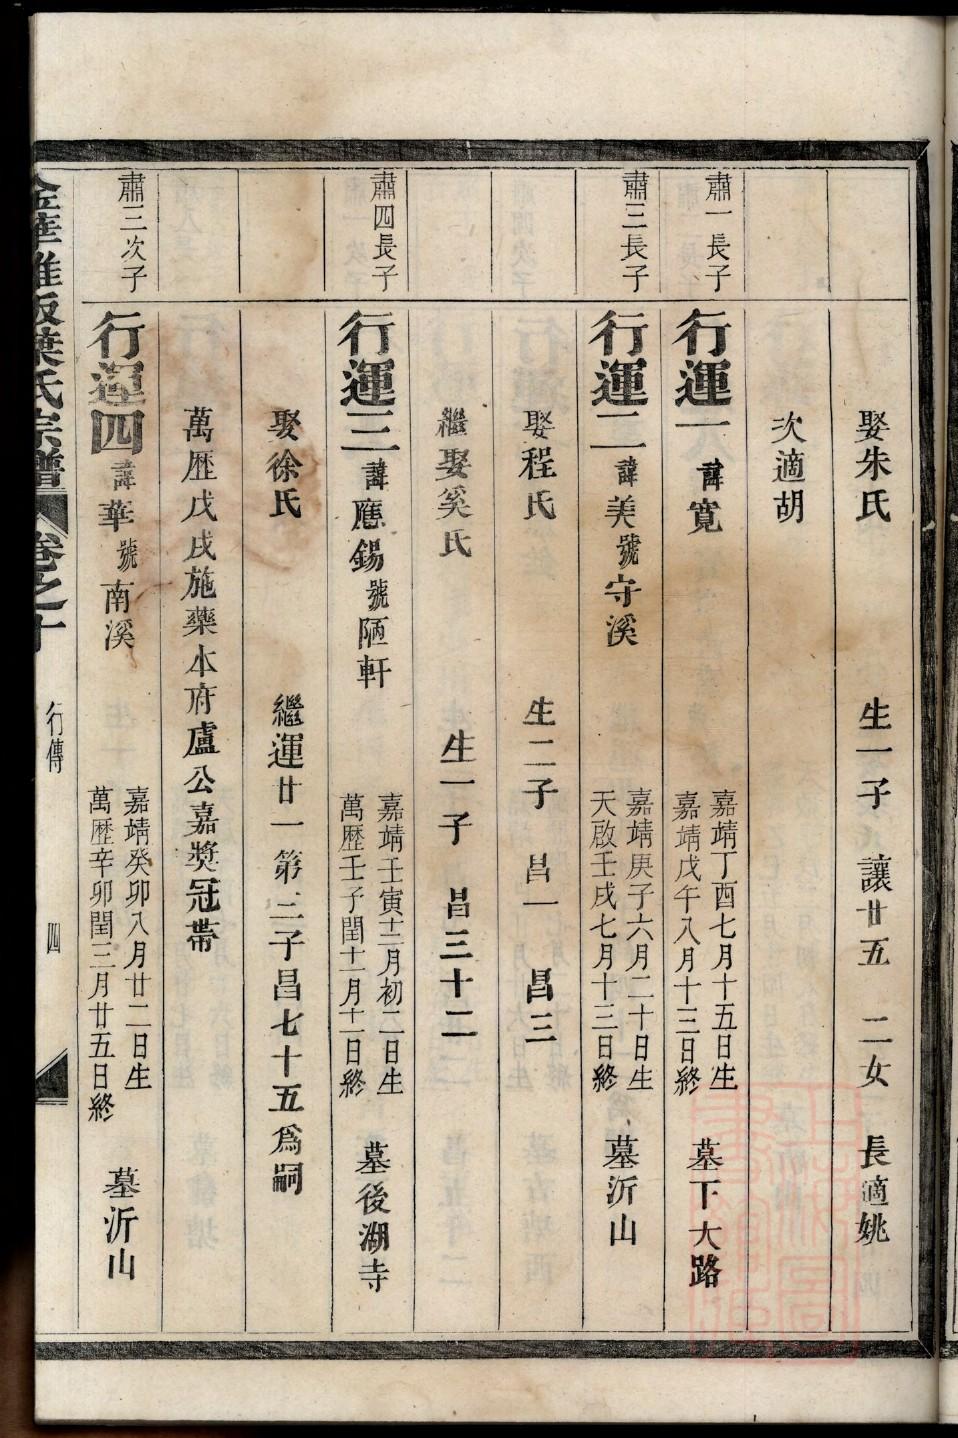 娶朱氏 生一子 讓廿五 二女 長適姚
次適胡
肅一長子
行運一 諱寬 嘉靖丁酉七月十五日生 嘉靖戊午八月十三日終 墓下大路
肅三長子
行運二 諱美號守溪 嘉靖庚子六月二十日生 天啟壬戌七月十三日終 墓沂山
娶程氏 生二子 昌一 昌三
繼娶奚氏 生一子 昌三十二
肅四長子
行運三 諱應錫號陋軒 嘉靖壬寅十二月初二日生 萬歷壬子閏十一月十一日終 墓後湖寺
娶徐氏 繼運廿一第二子昌七十五爲嗣
萬歷戊戌施藥本府盧公嘉獎冠帶
肅三次子
行運四 諱華號南溪 嘉靖癸卯八月廿二日生 萬歷辛卯閏三月廿五日終 墓沂山
葉氏宗譜 卷之十 行傳 四